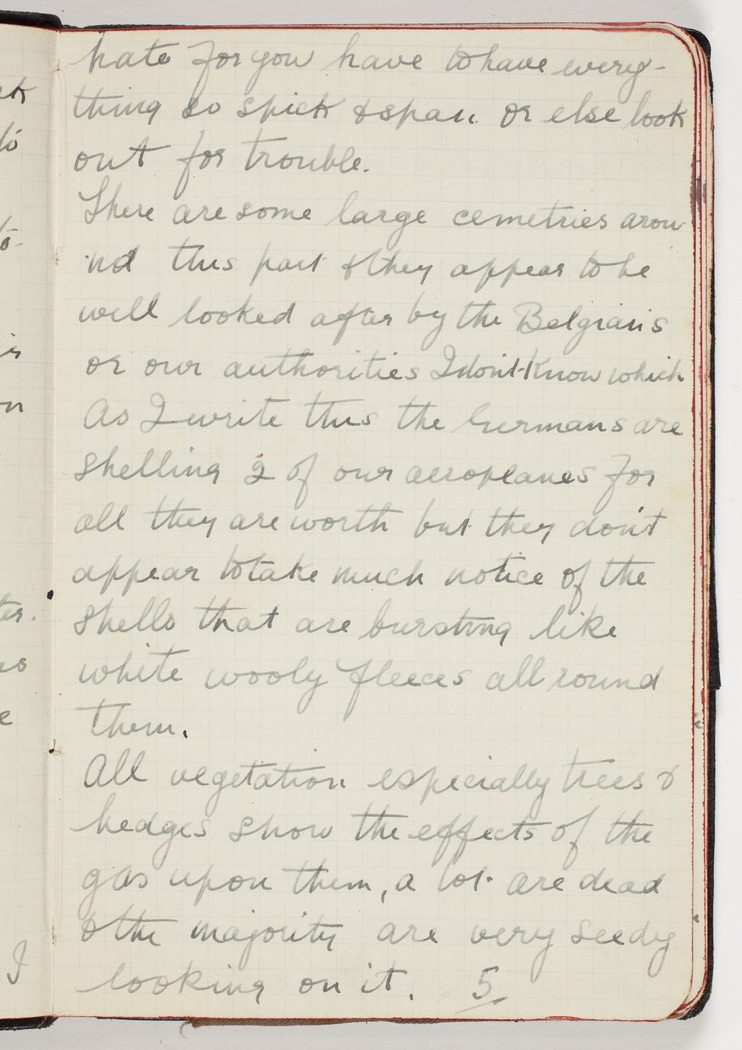 hate for you have to have every-
thing so spick & span or else look
out for trouble.
There are some large cemetries arou
nd this part & they appear to be
will looked after by the Belgians
or our authorities I don't know which
As I write this the Germans are
shelling 2 of our aeroplanes for
all they are worth but they don't
appear to take much notice of the
shells that are bursting like
white wooly fleeces all round
them.
All vegetation especially trees &
hedges show the effects of the
gas upon them, a lot are dead
& the majority are very seedy
looking on it. 5
I